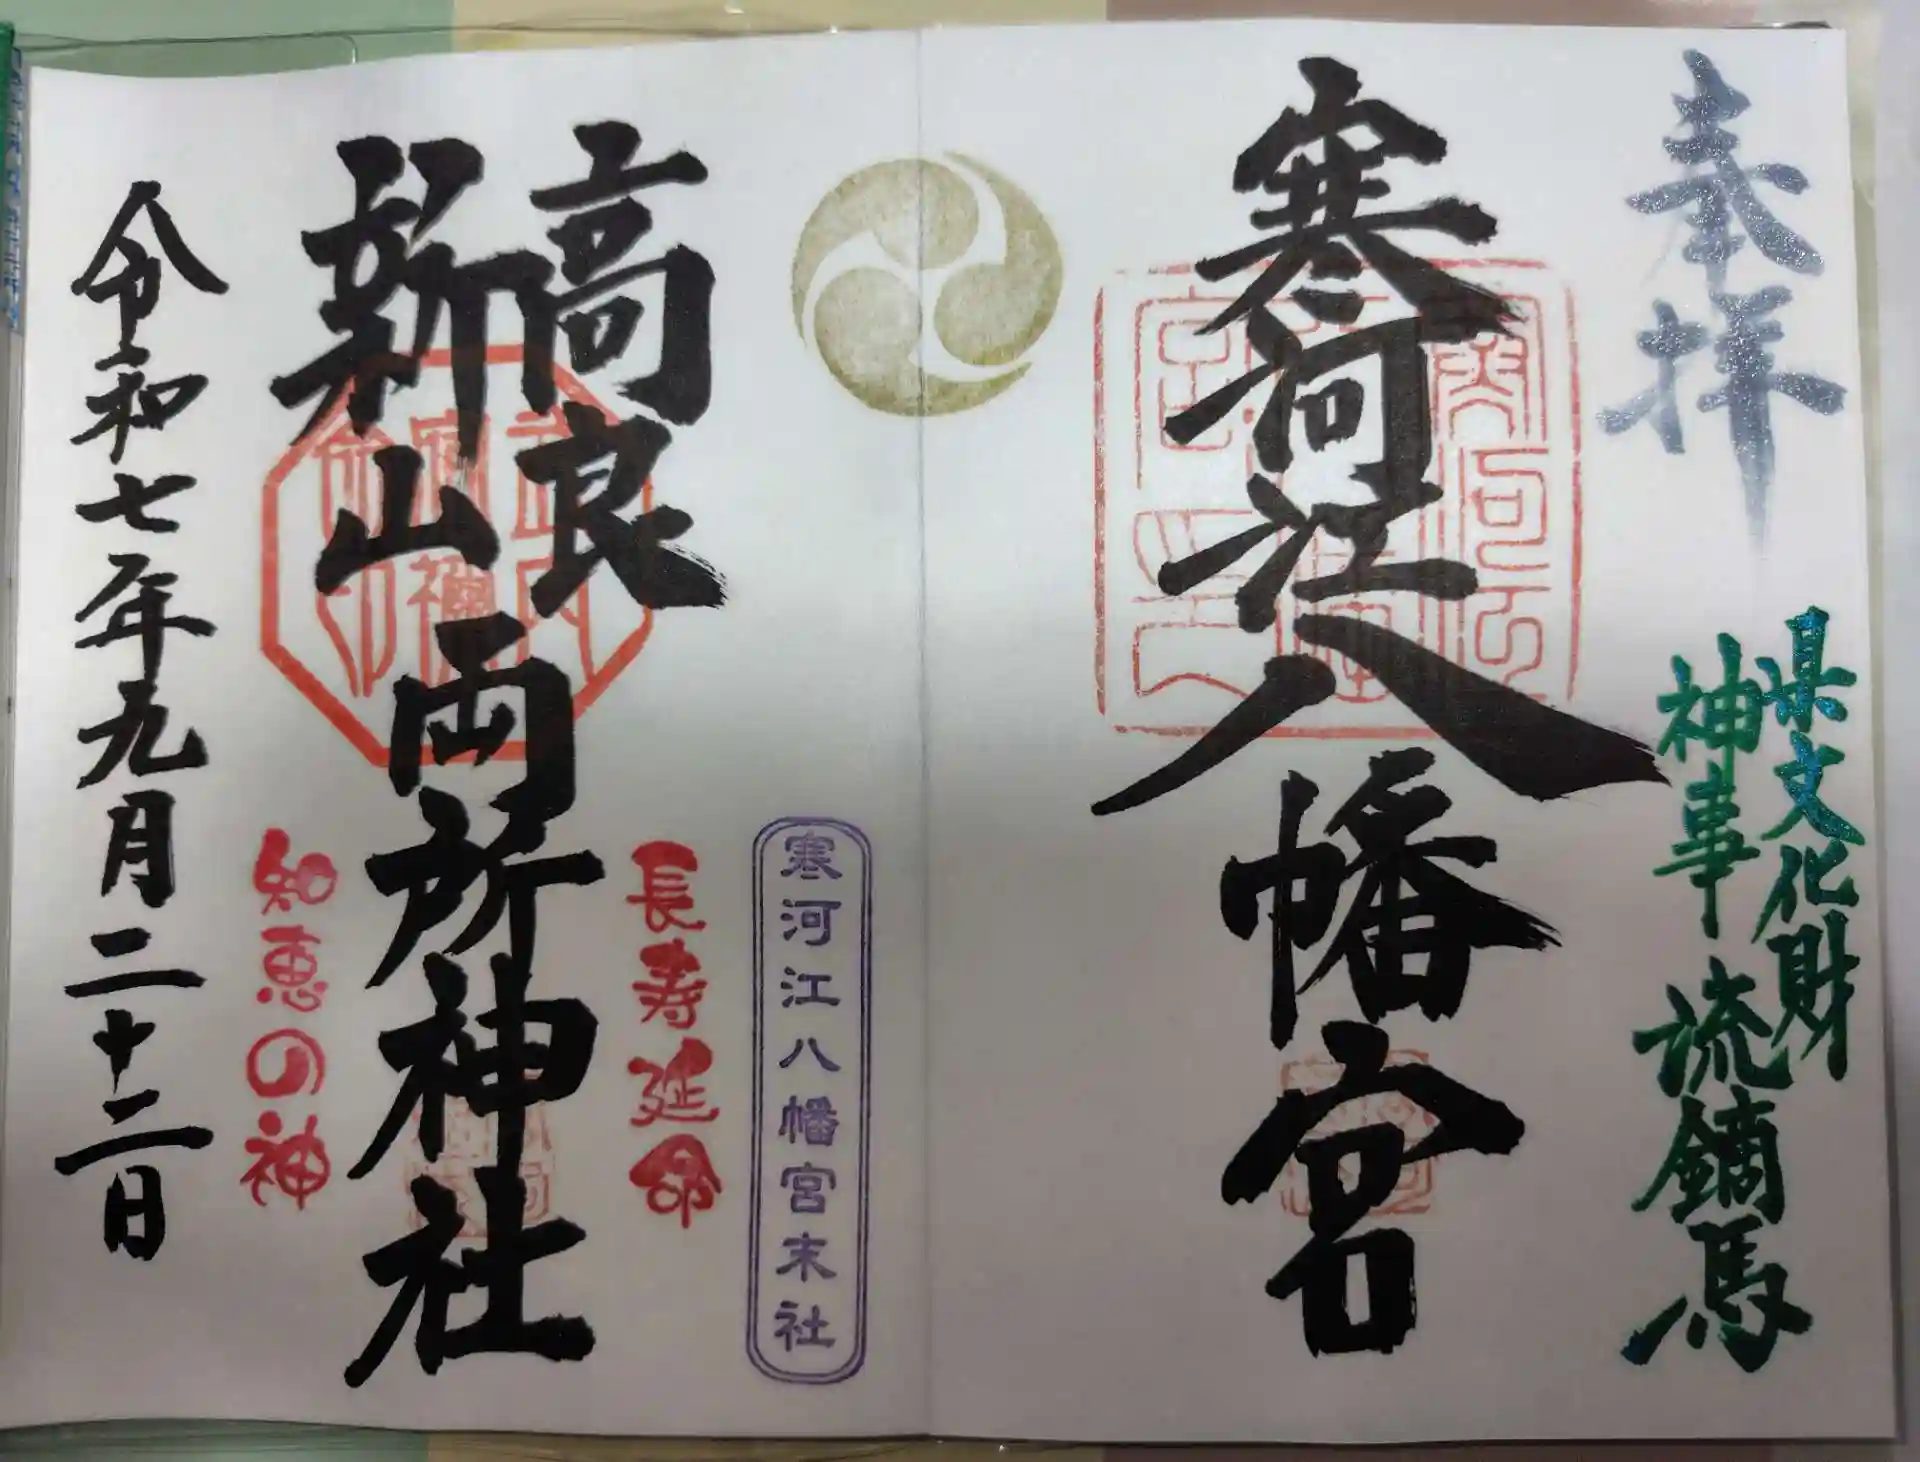 奉拝
県文化財
神事 流鏑馬
寒河江八幡宮
寒河江八幡宮末社
長寿延命
高良
新山
両所神社
知恵の神
令和七年九月二十二日